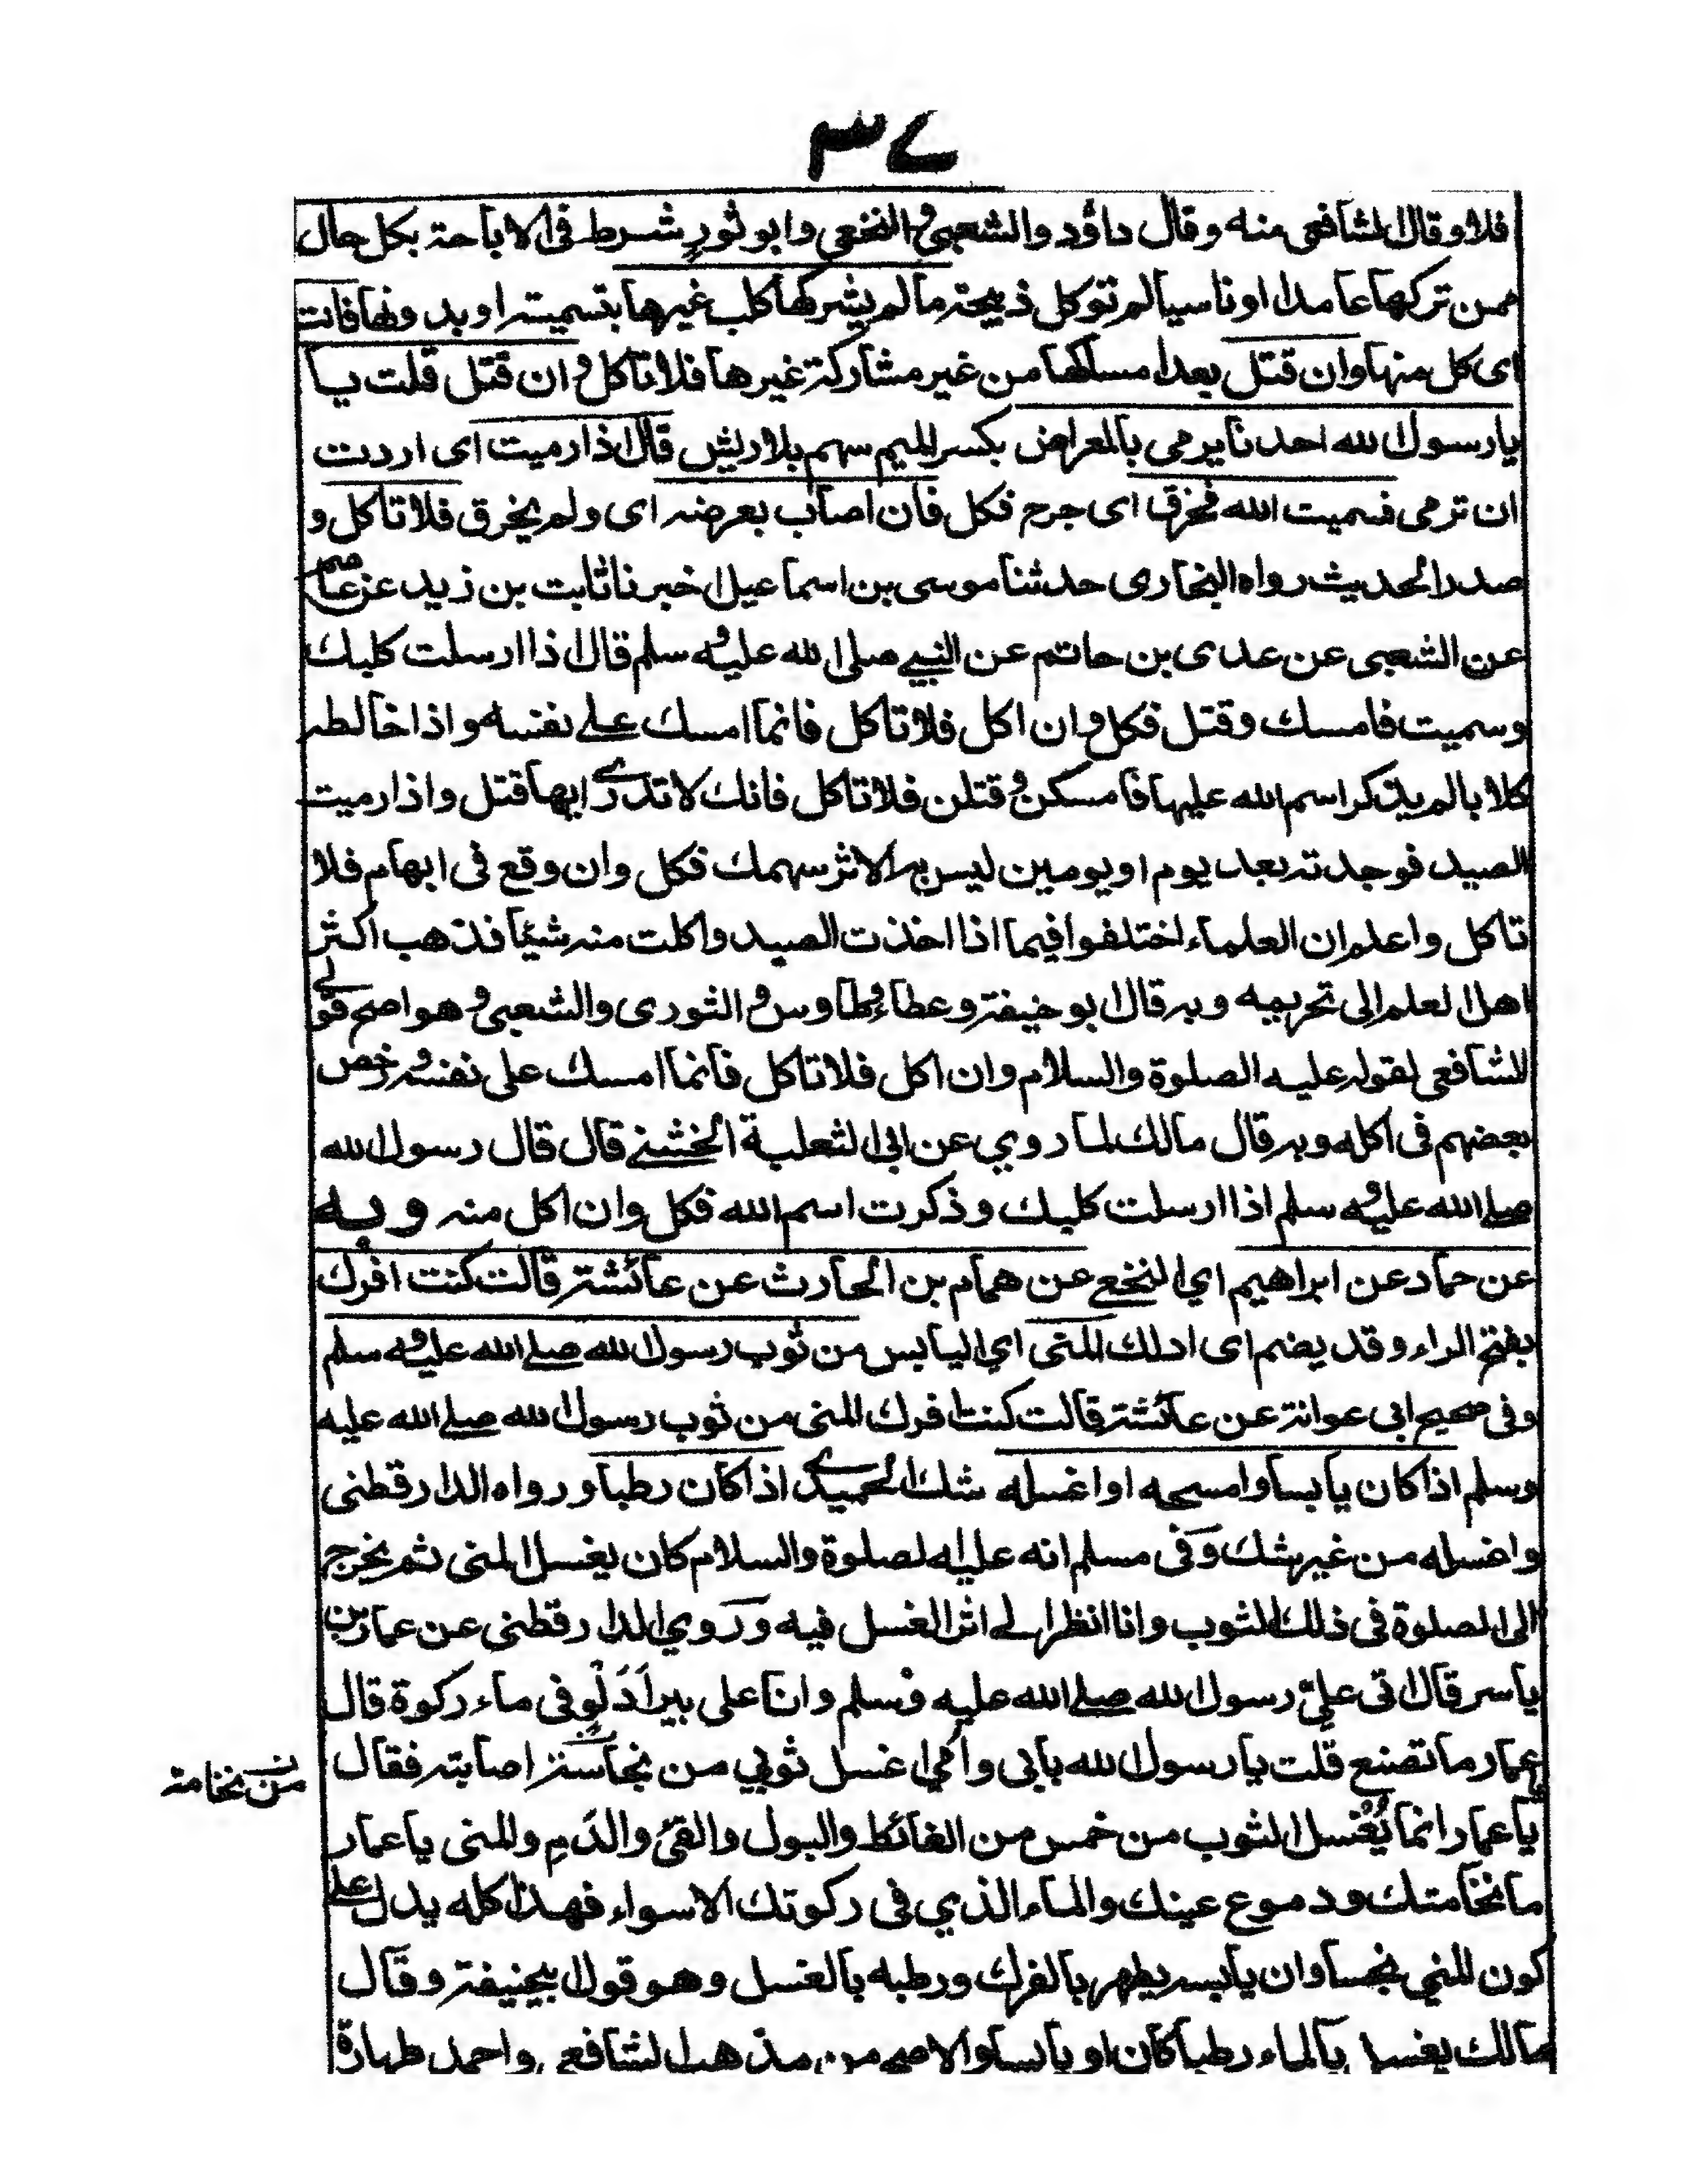 ٣٧
فلا وقال الشافعى منه وقال داؤد والشعبى والنخعى وابو ثور شرط فى الاباحة بكل حال
فمن تركها عامدا او ناسيا لم توكل ذبيحته ما لم يشركها كلب غيرها بتسمية او بدونها فات
اى كل منها وان قتل بعد امساكها من غير مشاركة غيرها فلا تاكل وان قتل قلت يا
يا رسول الله احدنا يرمى بالمعراض بكسر الميم سهم بلا ريش قال اذا رميت اى اردت
ان ترمى فسميت الله فخزق اى جرح فكل فان اصاب بعرضه اى ولم يخرق فلا تاكل و
صدر الحديث رواه البخارى حدثنا موسى بن اسماعيل اخبرنا ثابت بن زيد عن عاصم
عن الشعبى عن عدى بن حاتم عن النبى صلى الله عليه وسلم قال اذا ارسلت كلبك
وسميت فامسك وقتل فكل وان اكل فلا تاكل فانما امسك على نفسه واذا خالطه
كلابا لم يذكر اسم الله عليها فامسكن وقتلن فلا تاكل فانك لا تدرى ايها قتل واذا رميت
الصيد فوجدته بعد يوم او يومين ليس به الا اثر سهمك فكل وان وقع فى ابهام فلا
تاكل واعلم ان العلماء اختلفوا فيما اذا اخذت الصيد واكلت منه شيئا فذهب اكثر
اهل العلم الى تحريمه وبه قال ابو حنيفة وعطاء وطاوس والثورى والشعبى وهو اصح قولى
للشافعى لقوله عليه الصلوة والسلام وان اكل فلا تاكل فانما امسك على نفسه ورخص
بعضهم فى اكله وبه قال مالك لما روي عن ابى الثعلبة الخشنى قال قال رسول الله
صلى الله عليه وسلم اذا ارسلت كلبك وذكرت اسم الله فكل وان اكل منه وبه
عن حماد عن ابراهيم اي النخعى عن همام بن الحارث عن عائشة قالت كنت افرك
بفتح الراء وقد يضم اى ادلك المنى اي اليابس من ثوب رسول الله صلى الله عليه وسلم
وفى صحيح ابى عوانة عن عائشة قالت كنت افرك المنى من ثوب رسول الله صلى الله عليه
وسلم اذا كان يابسا وامسحه او اغسله شك الحميدى اذا كان رطبا ورواه الدارقطنى
واغسله من غير شك وفى مسلم انه عليه الصلوة والسلام كان يغسل المنى ثم يخرج
الى الصلوة فى ذلك الثوب وانا انظر الى اثر الغسل فيه وروي الدارقطنى عن عمار بن
ياسر قال اتى علىّ رسول الله صلى الله عليه وسلم وانا على بير اَدلُو فى ماء ركوة قال
عمار ما تصنع قلت يا رسول الله بابى وامى اغسل ثوبي من نجاسة اصابته فقال
من نخامة
يا عمار انما يُغْسل الثوب من خمس من الغائط والبول والقئ والدَمِ والمنى يا عمار
ما نخامتك ودموع عينك والماء الذي فى ركوتك الا سواء فهذا كله يدل على
كون المني نجسا وان يابسه يطهر بالفرك ورطبه بالغسل وهو قول ابيحنيفة وقال
مالك يغسل بالماء رطبا كان او يابسا والاصح من مذهب الشافعى واحمد طهارة